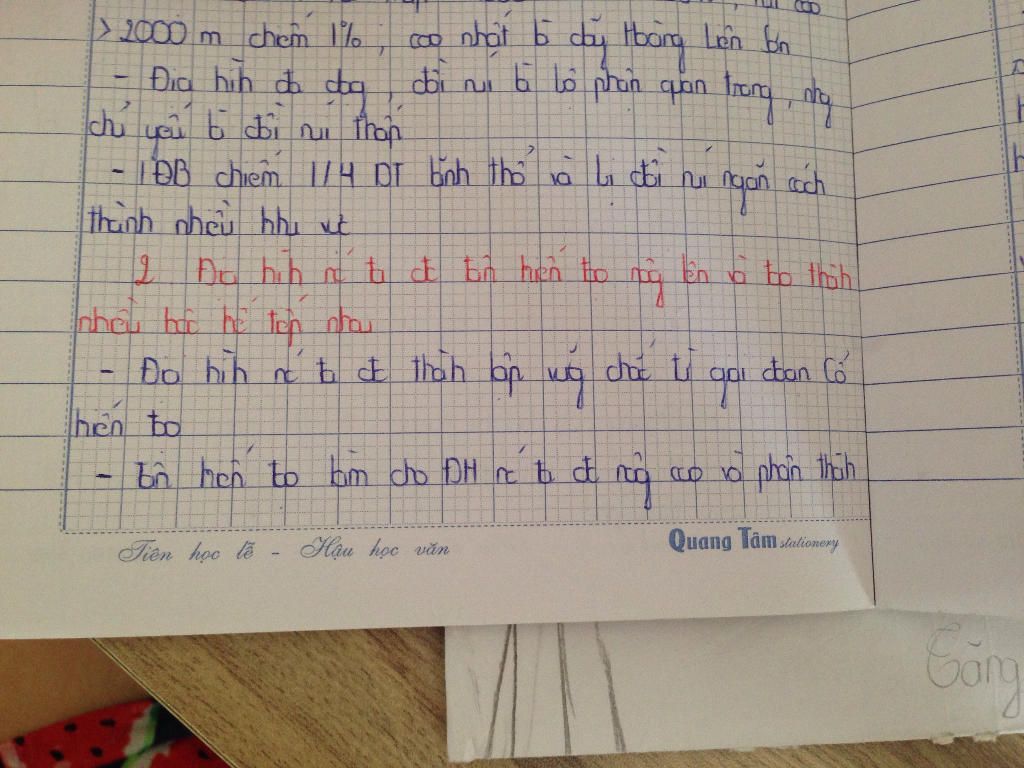 > 2000 m chiếm 1%, cao nhất là dãy Hoàng Liên Sơn
- Địa hình đa dạng, đồi núi là bộ phận quan trọng, nhg
chủ yếu là đồi núi thấp
- ĐB chiếm 1/4 DT lãnh thổ và bị đồi núi ngăn cách
thành nhiều khu vt
2 Địa hình nc ta đc tân kiến tạo nâng lên và tạo thành
nhiều bậc kế tiếp nhau
- Địa hình nc ta đc thành lập vững chắc từ giai đoạn Cổ
kiến tạo
- Tân kiến tạo làm cho ĐH nc ta đc nâng cao và phân thành
Tiên học lễ - Hậu học văn
Quang Tâm stationery
Căng